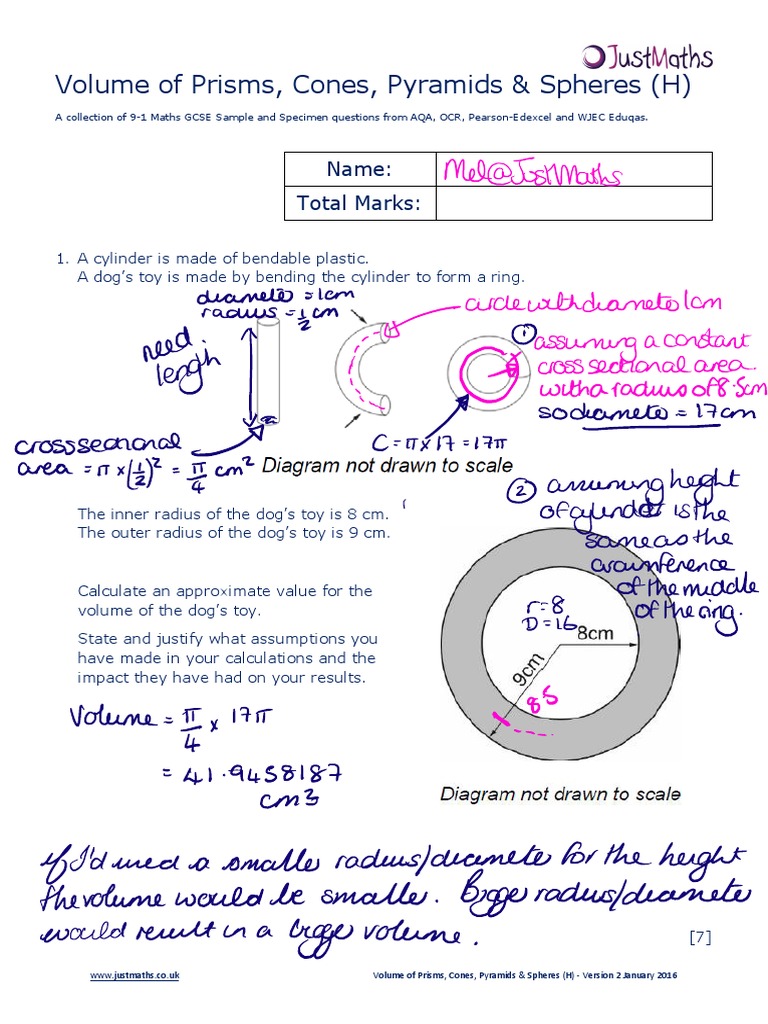 JustMaths
Volume of Prisms, Cones, Pyramids & Spheres (H)
A collection of 9-1 Maths GCSE Sample and Specimen questions from AQA, OCR, Pearson-Edexcel and WJEC Eduqas.
Name: Mel@JustMaths
Total Marks:
1. A cylinder is made of bendable plastic.
A dog's toy is made by bending the cylinder to form a ring.
diameter = 1cm
radius = 1/2 cm
need
length
circle with diameter 1cm
① assuming a constant
cross sectional area.
with a radius of 8.5cm
so diameter = 17cm
C = π x 17 = 17π
cross sectional
area = π x (1/2)² = π/4 cm²
Diagram not drawn to scale
② assuming height
of cylinder is the
same as the
circumference
of the middle
of the ring.
The inner radius of the dog's toy is 8 cm.
The outer radius of the dog's toy is 9 cm.
Calculate an approximate value for the
volume of the dog's toy.
State and justify what assumptions you
have made in your calculations and the
impact they have had on your results.
r=8
D=16
8cm
9cm
8.5
Volume = π/4 x 17π
= 41.9458187
cm3
Diagram not drawn to scale
if I'd used a smaller radius/diameter for the height
the volume would be smaller. Bigger radius/diameter
would result in a bigger volume.
[7]
www.justmaths.co.uk
Volume of Prisms, Cones, Pyramids & Spheres (H) - Version 2 January 2016